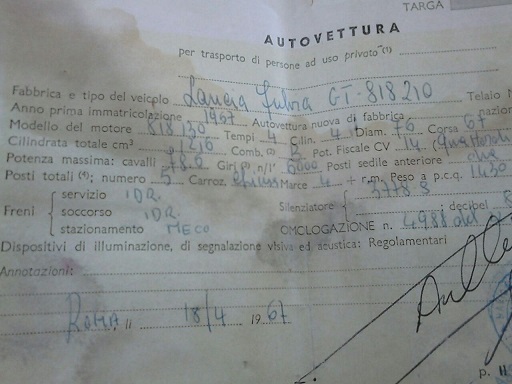 TARGA
AUTOVETTURA
per trasporto di persone ad uso privato (1)
Fabbrica e tipo del veicolo Lancia Fulvia GT. 818210 Telaio
Anno prima immatricolazione 1967 Autovettura nuova di fabbrica
Modello del motore 818130 Tempi 4 Cilin. 4 Diam. 76 Corsa 67
Cilindrata totale cm³ 1216 Comb. Pot. Fiscale CV 14 (Quattordi
Potenza massima: cavalli 78.6 Giri n/1' 6000 Posti sedile anteriore due
Posti totali (4); numero 5 Carroz. Marce 4 + r.m. Peso a p.c.q. 1430
Freni servizio IDR. Silenziatore 3778 S
soccorso IDR. decibel 8
stazionamento MECC OMOLOGAZIONE n. 4988 del
Dispositivi di illuminazione, di segnalazione visiva ed acustica: Regolamentari
Annotazioni:
ROMA, li 18/4 1967
p. Il